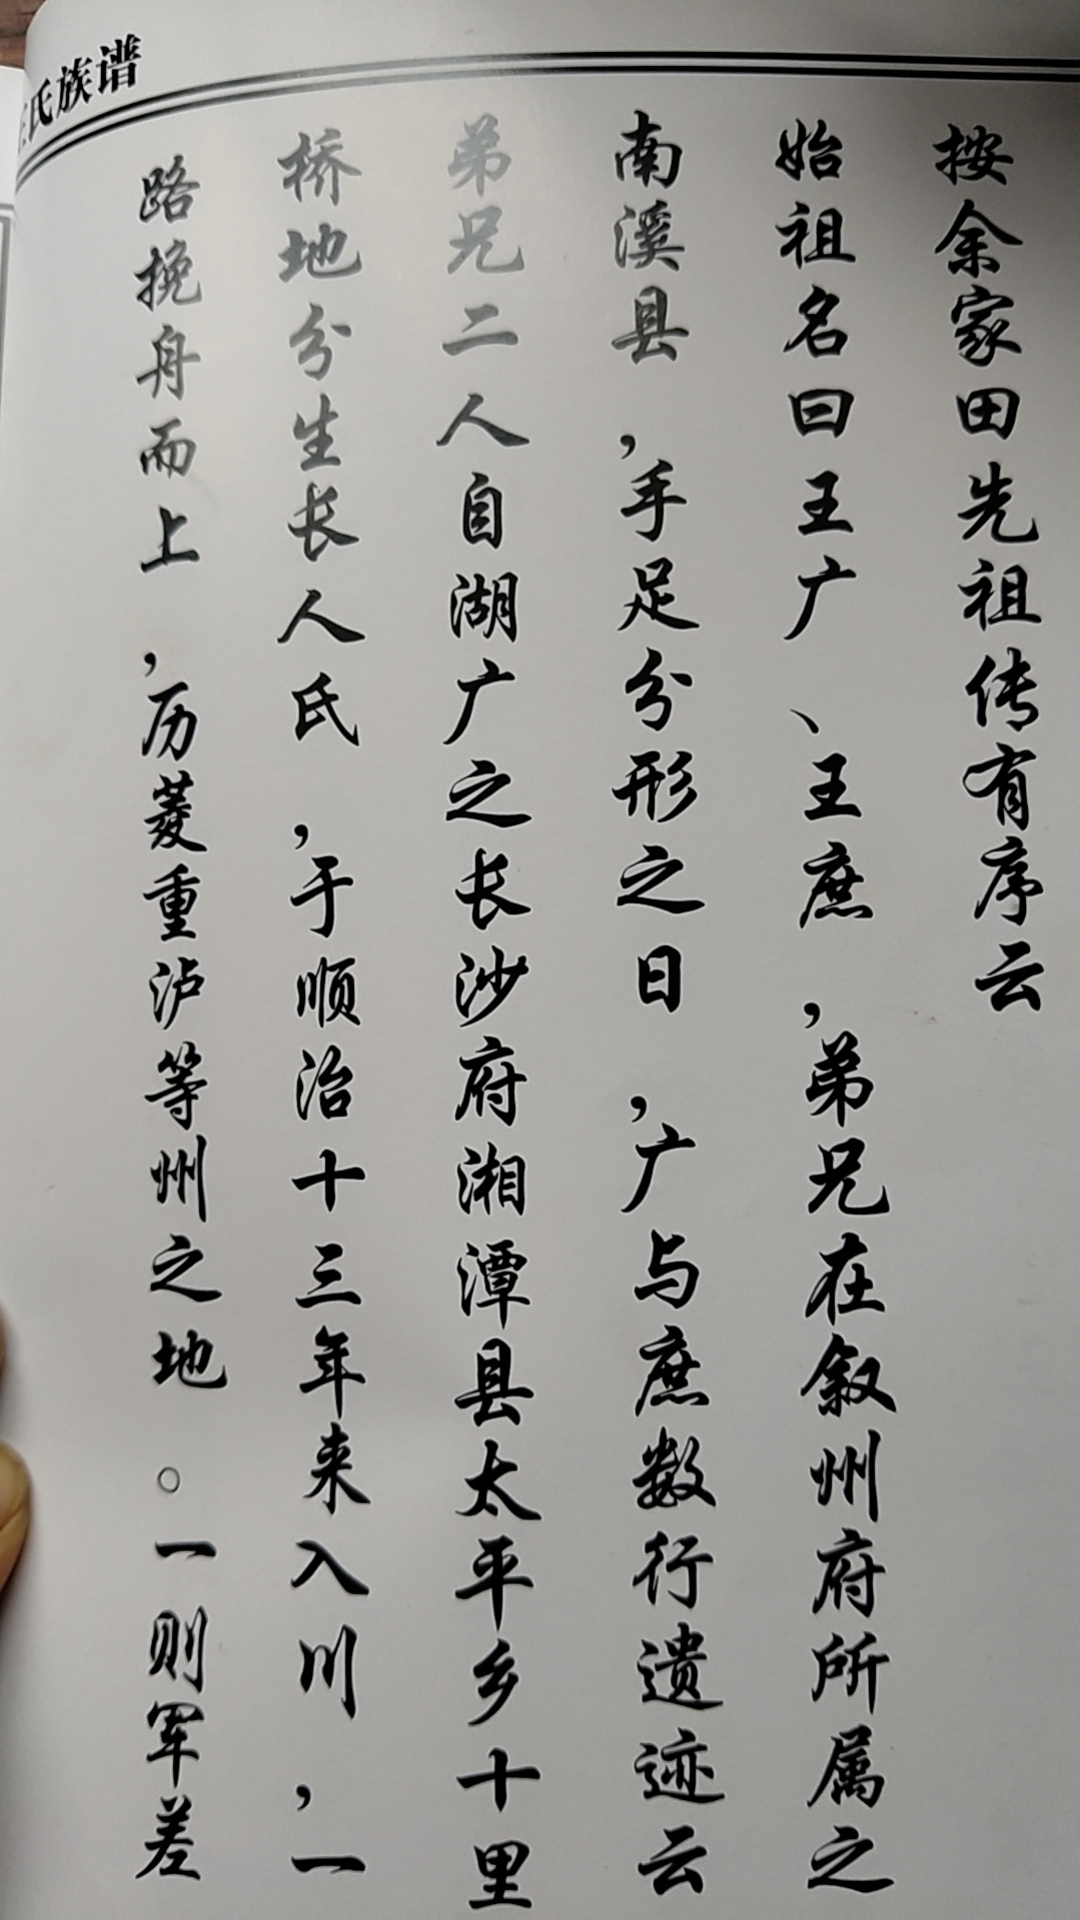 氏族谱
按余家田先祖传有序云
始祖名曰王广、王庶，弟兄在叙州府所属之
南溪县，手足分形之日，广与庶数行遗迹云
弟兄二人自湖广之长沙府湘潭县太平乡十里
桥地分生长人氏，于顺治十三年来入川，一
路挽舟而上，历菱重泸等州之地。一则军差